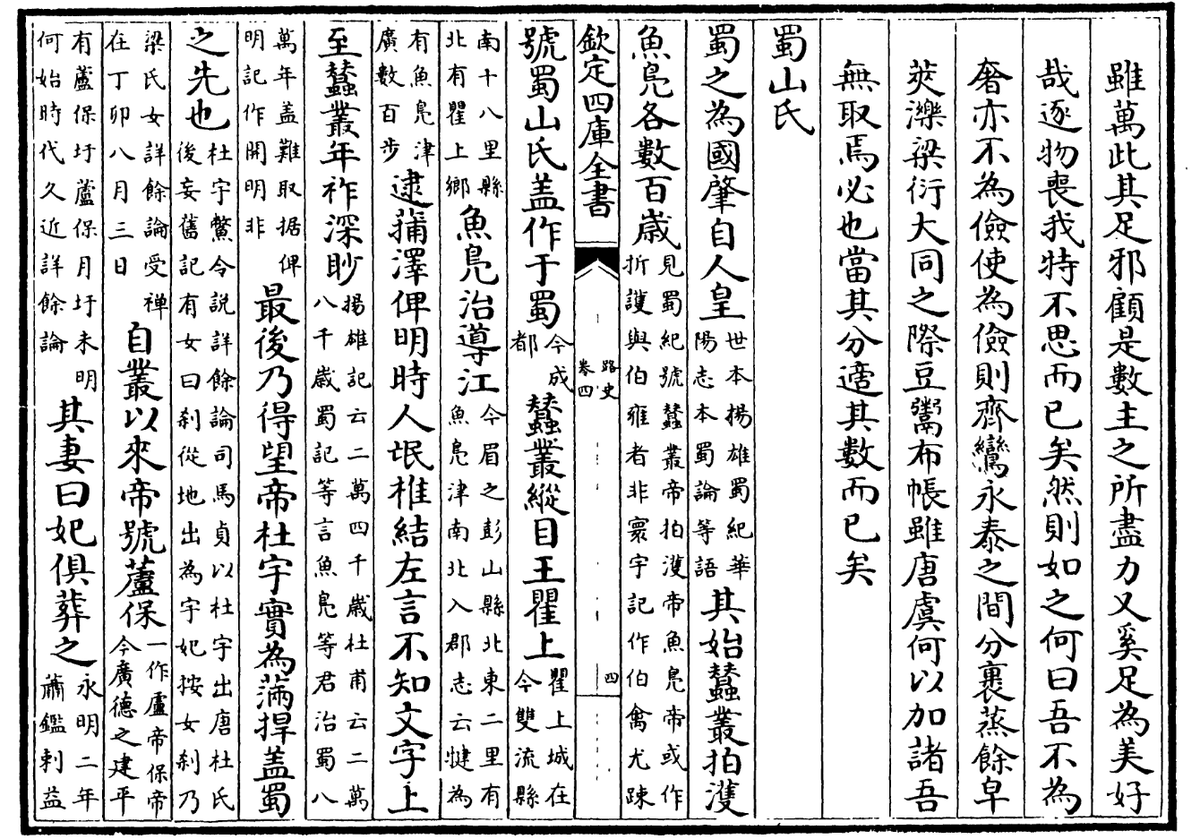 雖萬此其足邪顧是數主之所盡力又奚足為美好
哉逐物喪我特不思而已矣然則如之何曰吾不為
奢亦不為儉使為儉則齊鸞永泰之間分裹蒸餘皁
莢濼梁衍大同之際豆鬻布帳雖唐虞何以加諸吾
無取焉必也當其分適其數而已矣
蜀山氏
蜀之為國肇自人皇世本揚雄蜀紀華陽志本蜀論等語其始蠶叢拍濩
魚鳧各數百歳見蜀紀號蠶叢帝拍濩帝魚鳧帝或作折護與伯雍者非寰宇記作伯禽尤踈
欽定四庫全書
路史
卷四
四
號蜀山氏盖作于蜀今成都蠶叢縱目王瞿上瞿上城在今雙流縣
南十八里縣北有瞿上鄉魚鳧治導江今眉之彭山縣北東二里有魚鳧津南北入郡志云犍為
有魚鳧津廣數百步逮蒲澤俾明時人氓椎結左言不知文字上
至蠶叢年祚深眇揚雄記云二萬四千歲杜甫云二萬八千歲蜀記等言魚鳧等君治蜀八
萬年盖難取据俾明記作開明非最後乃得望帝杜宇實為滿捍盖蜀
之先也杜宇鱉令說詳餘論司馬貞以杜宇出唐杜氏後妄舊記有女曰刹從地出為宇妃按女刹乃
梁氏女詳餘論受禪在丁卯八月三日自叢以來帝號蘆保一作盧帝保帝今廣德之建平
有蘆保圩蘆保月圩未明何始時代久近詳餘論其妻曰妃俱葬之永明二年蕭鑑刺益